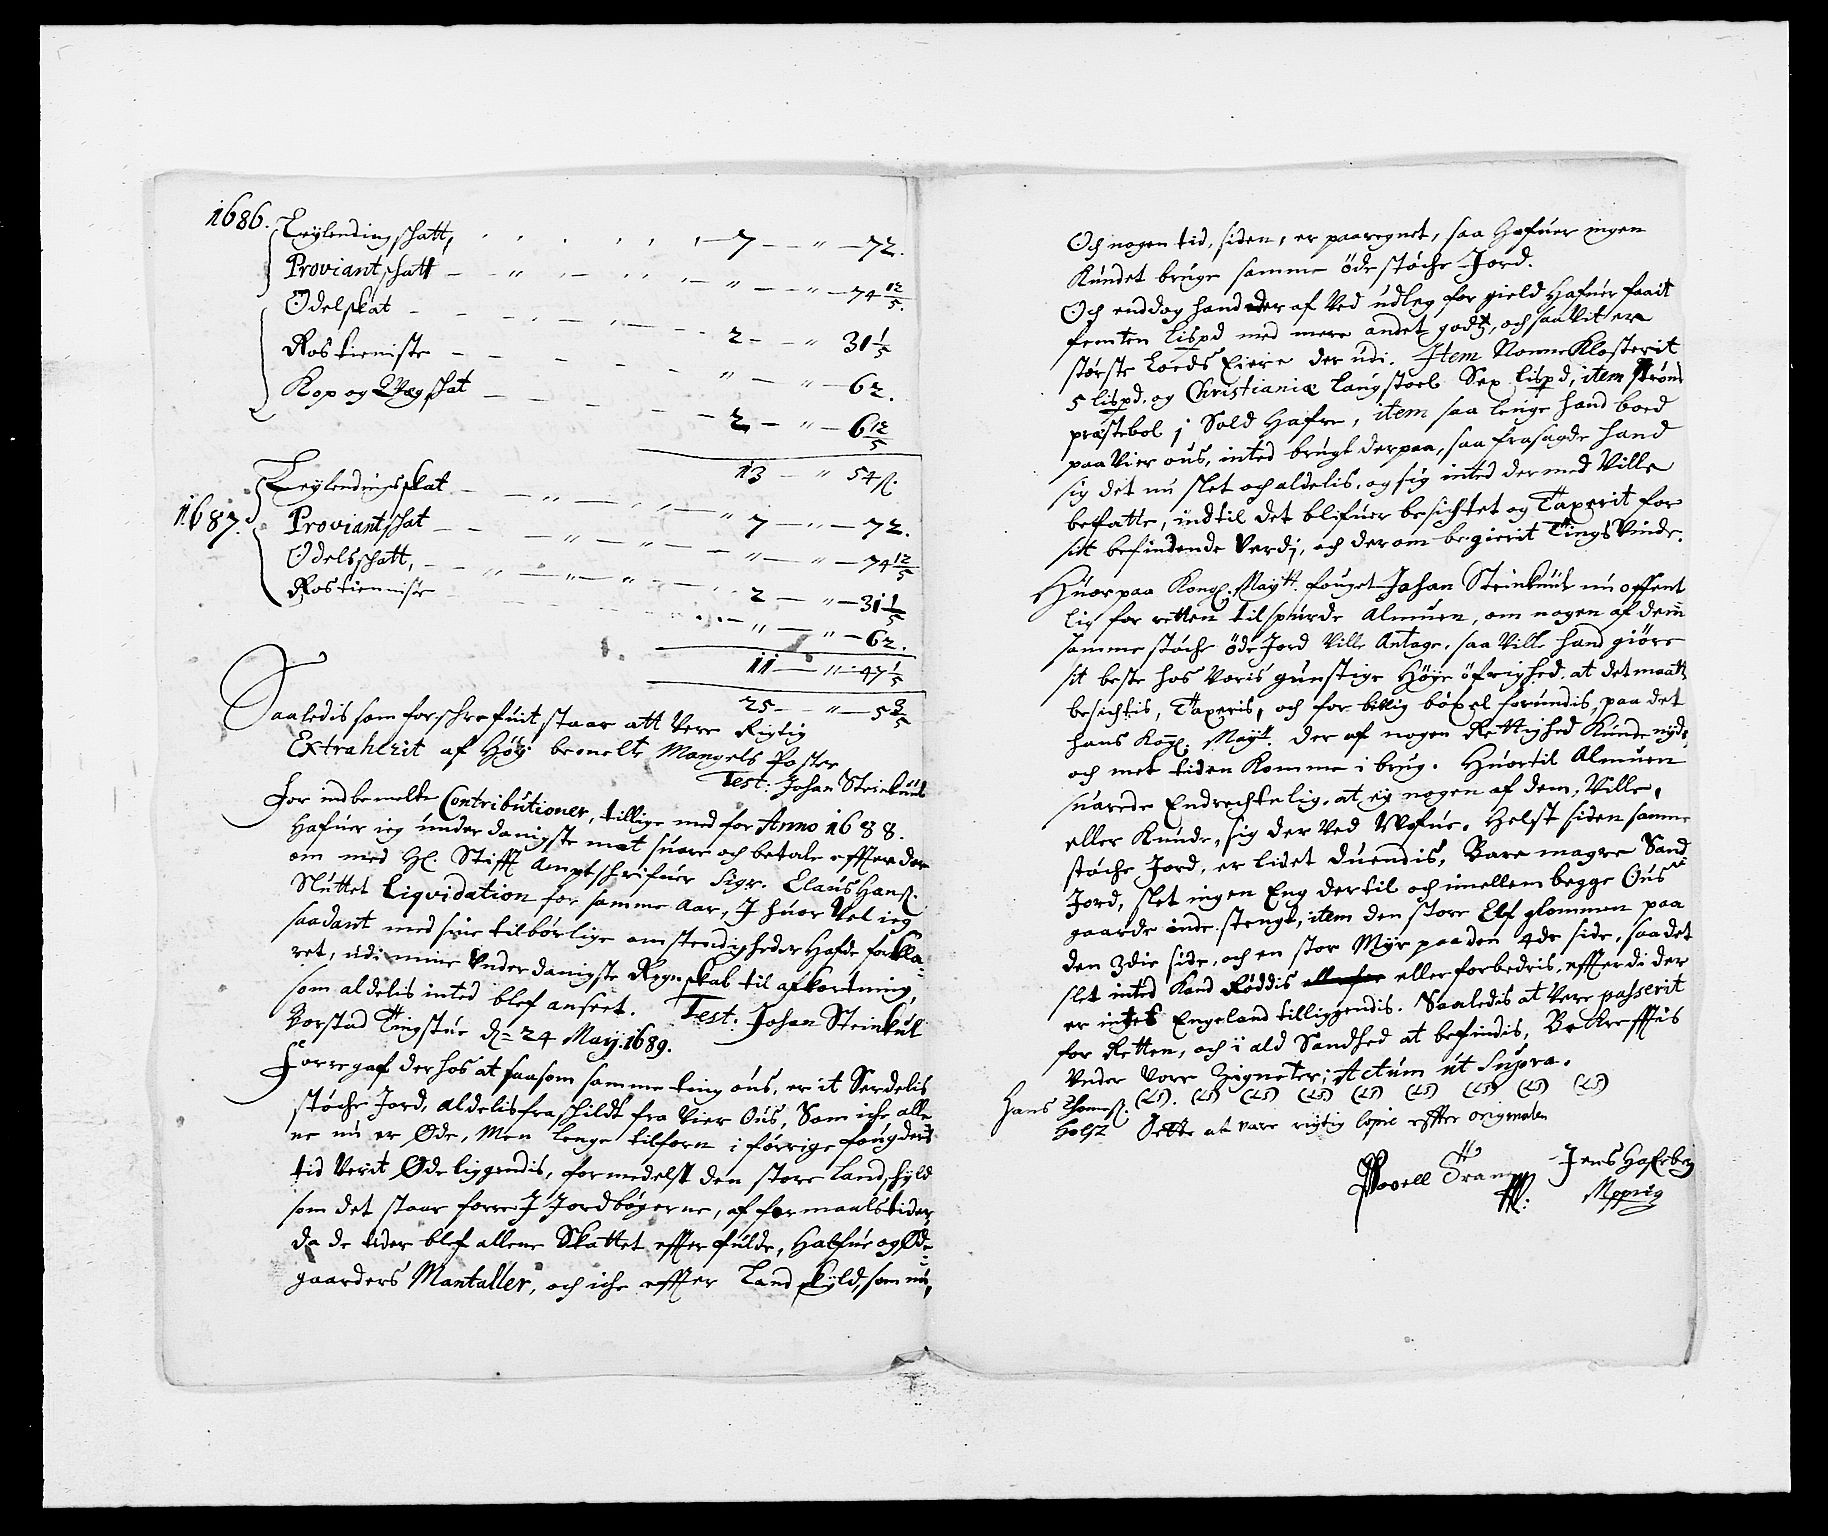 1686. Leylendingschatt, 7 — " — 72.
Proviantschatt — " — " — 74 12/5.
Odelskat — 2 — " 31 1/5
Rostieniste — " — " — 62.
Kop og Qvægschat — 2 — " — 6 12/5
13 — " 54 ſ.
1687. Leylendingsskat — 7 — " — 72.
Proviantschat — " — " — 74 12/5
Odelsschatt, — 2 — " — 31 1/5
Rostienniste — " — " — 62.
11 — " — 47 1/5
25 — " — 5 3/5
Saaledis som forschrefuit staar att Vere Rigtig
Extraherit af Høyb: bemelte Mangels Poster
Test: Johan Steinkuul
For indbemelte Contributioner, tillige med for Anno 1688.
Hafuer ieg underdanigste mat suare och betale effter der
om med Hl. Stifft Amptschrifuer Sigr. Claus Hanß.
Sluttet Liqvidation for samme Aar, J huor Vel ieg
saadant med sine tilbørlige omstendigheder Hafde forkla-
ret, udi mine Underdanigste Regnskab til afkortning,
som aldelis inted blef anseet. Test: Johan Steinkul
Vorstad Tingstue dn 24 Maij. 1689.
Forregaf der hos at saasom samme ting øus, er it Serdelis
støche Jord, aldelis fraschildt fra Vier Øus, Som iche alle-
ne nu er Øde, Men lenge tilforn i forrige fougders
tid Verit Øde liggendis, formedelst den store Landschyld
som det staar forre J Jordbøgerne, af formaals tider,
da de tider blef allene Skattet effter fulde, Halfue og Øde-
gaarders Mantaller, och iche effter Landskyld, som nu,
Och nogen tid, siden, er paaregnet, saa Hafuer ingen
Kundet bruge samme øde støche Jord.
Och enddog hand der af Ved udleg for gield Hafuer faait
femten Lispd med mere andet godtz, och saa Vit er
største Loeds Eiere der udi. Item NonneKlosterit
5 lispd. og Christianiæ Laugstoel Sex lispd, item Strøms
præstebol j Sold Hafre, item saa lenge hand boed
paa Vier øus, inted brugt der paa, saa frasagde hand
sig det nu slet och aldelis, og sig inted der med Ville
befatte, indtil det blifuer besichtet og Taxerit for
sit befindende Verdj, och derom begierit TingsVinde.
Huorpaa Kongl. Maytt. fouget Johan Steinkuul nu offent
lig for retten tilspurde Almuen, om nogen af dem
samme støche øde Jord Ville Antage, saa Ville hand giøre
sit beste hos Voris gunstige Høye øfrighed, at det maatte
besichtis, Taxeris, och for billig bøxel forundis, paa det
hans Kogl. Maytt. der af nogen Rettighed Kunde nyde,
och met tiden Komme i brug. Huortil Almuen
suarede Endrechtelig, at ej nogen af dem, Ville,
eller Kunde, sig der Ved Vofue. Helst siden samme
støche Jord, er lidet duendis, Bare magre Sand
Jord, slet ingen Eng dertil och imellem begge Øus
gaarde indestengt, item den store Elf glommen paa
den 3die side, och en stor Myr paa den 4de side, saa det
slet inted Kand Røddis eller forbedris, efferdi der
er intet Engeland tilliggendis. Saaledis at Vere passerit
for Retten, och i ald Sandhed at befindis, Bekreffftis
Under Vore Zigneter; Actum ut Supra.
Hans Thomeß. (LS). (LS) (LS) (LS) (LS) (LS) (LS) (LS) (LS)
Holst Dette at vare rigtig Copie effter originalen
Povell Jens Hafrberg
Mppria